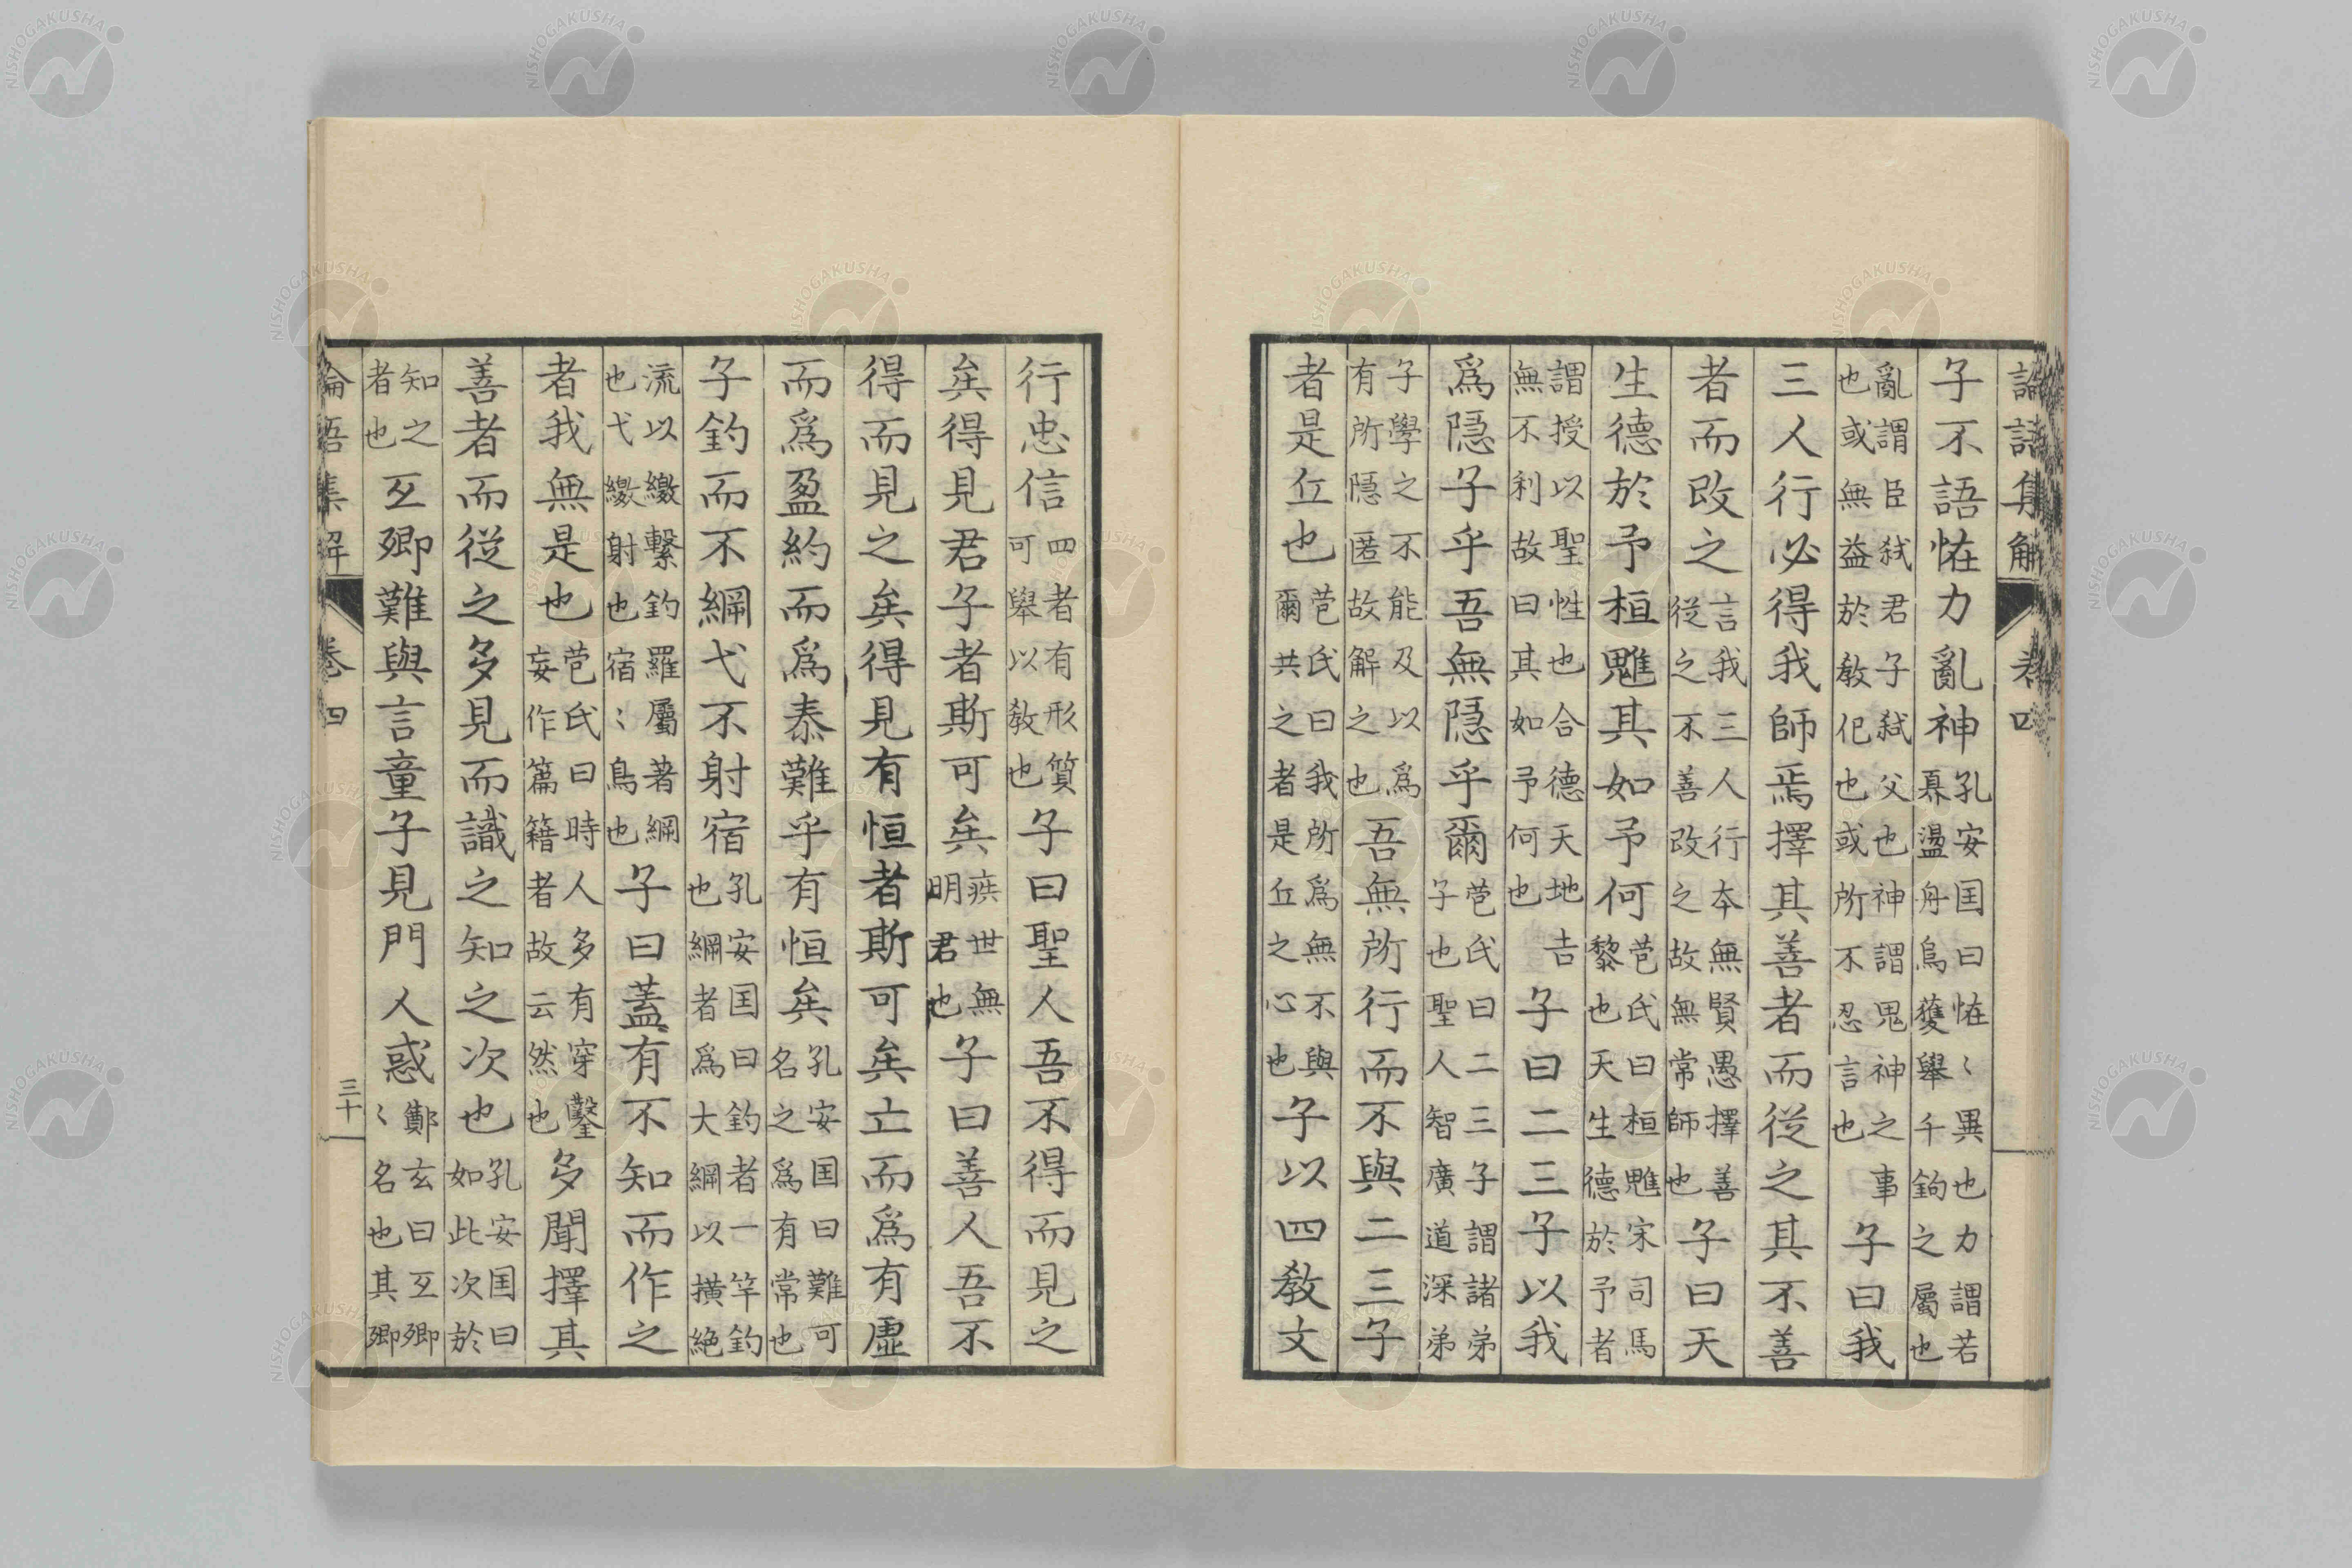 論語集解 卷四
子不語恠力亂神孔安囯曰恠〻異也力謂若奡盪舟烏獲舉千鈞之屬也
亂謂臣弑君子弑父也神謂鬼神之事也或無益於敎化也或所不忍言也子曰我
三人行必得我師焉擇其善者而從之其不善
者而改之言我三人行本無賢愚擇善從之不善改之故無常師也子曰天
生德於予桓魋其如予何苞氏曰桓魋宋司馬黎也天生德於予者
謂授以聖性也合德天地吉無不利故曰其如予何也子曰二三子以我
爲隱子乎吾無隱乎爾苞氏曰二三子謂諸弟子也聖人智廣道深弟
子學之不能及以爲有所隱匿故解之也吾無所行而不與二三子
者是丘也苞氏曰我所爲無不與爾共之者是丘之心也子以四敎文
行忠信四者有形質可舉以敎也子曰聖人吾不得而見之
矣得見君子者斯可矣疾世無明君也子曰善人吾不
得而見之矣得見有恒者斯可矣亡而爲有虛
而爲盈約而爲泰難乎有恒矣孔安囯曰難可名之爲有常也
子釣而不綱弋不射宿孔安囯曰釣者一竿釣也綱者爲大綱以横絶
流以繳繫釣羅屬著綱也弋繳射也宿〻鳥也子曰蓋有不知而作之
者我無是也苞氏曰時人多有穿鑿妄作篇籍者故云然也多聞擇其
善者而從之多見而識之知之次也孔安囯曰如此次於
知之者也互鄕難與言童子見門人惑鄭玄曰互鄕〻名也其鄕
論語集解 卷四 三十
NISHOGAKUSHA